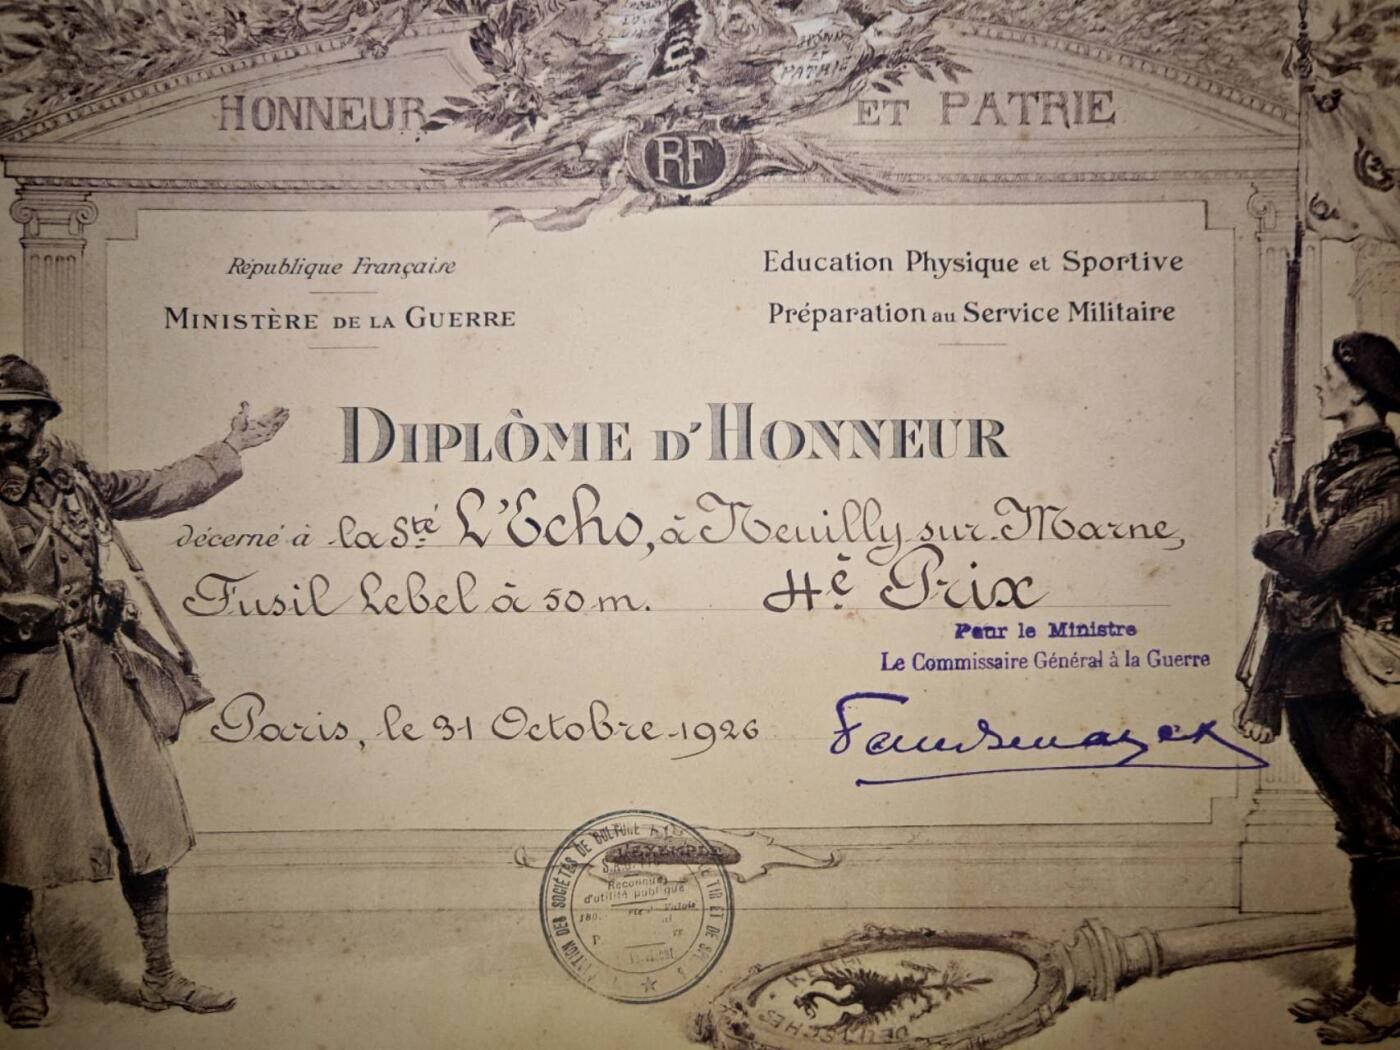 HONNEUR ET PATRIE
RF
République Française
MINISTÈRE DE LA GUERRE
Education Physique et Sportive
Préparation au Service Militaire
DIPLÔME D'HONNEUR
décerné à la Sté L'Echo, à Neuilly sur-Marne,
Fusil Lebel à 50 m. 4è Prix
Pour le Ministre
Le Commissaire Général à la Guerre
Paris, le 31 Octobre 1926
DES SOCIÉTÉS DE CULTURE TIR ET DE
L'EXEMPLE
Reconnue
d'utilité publique